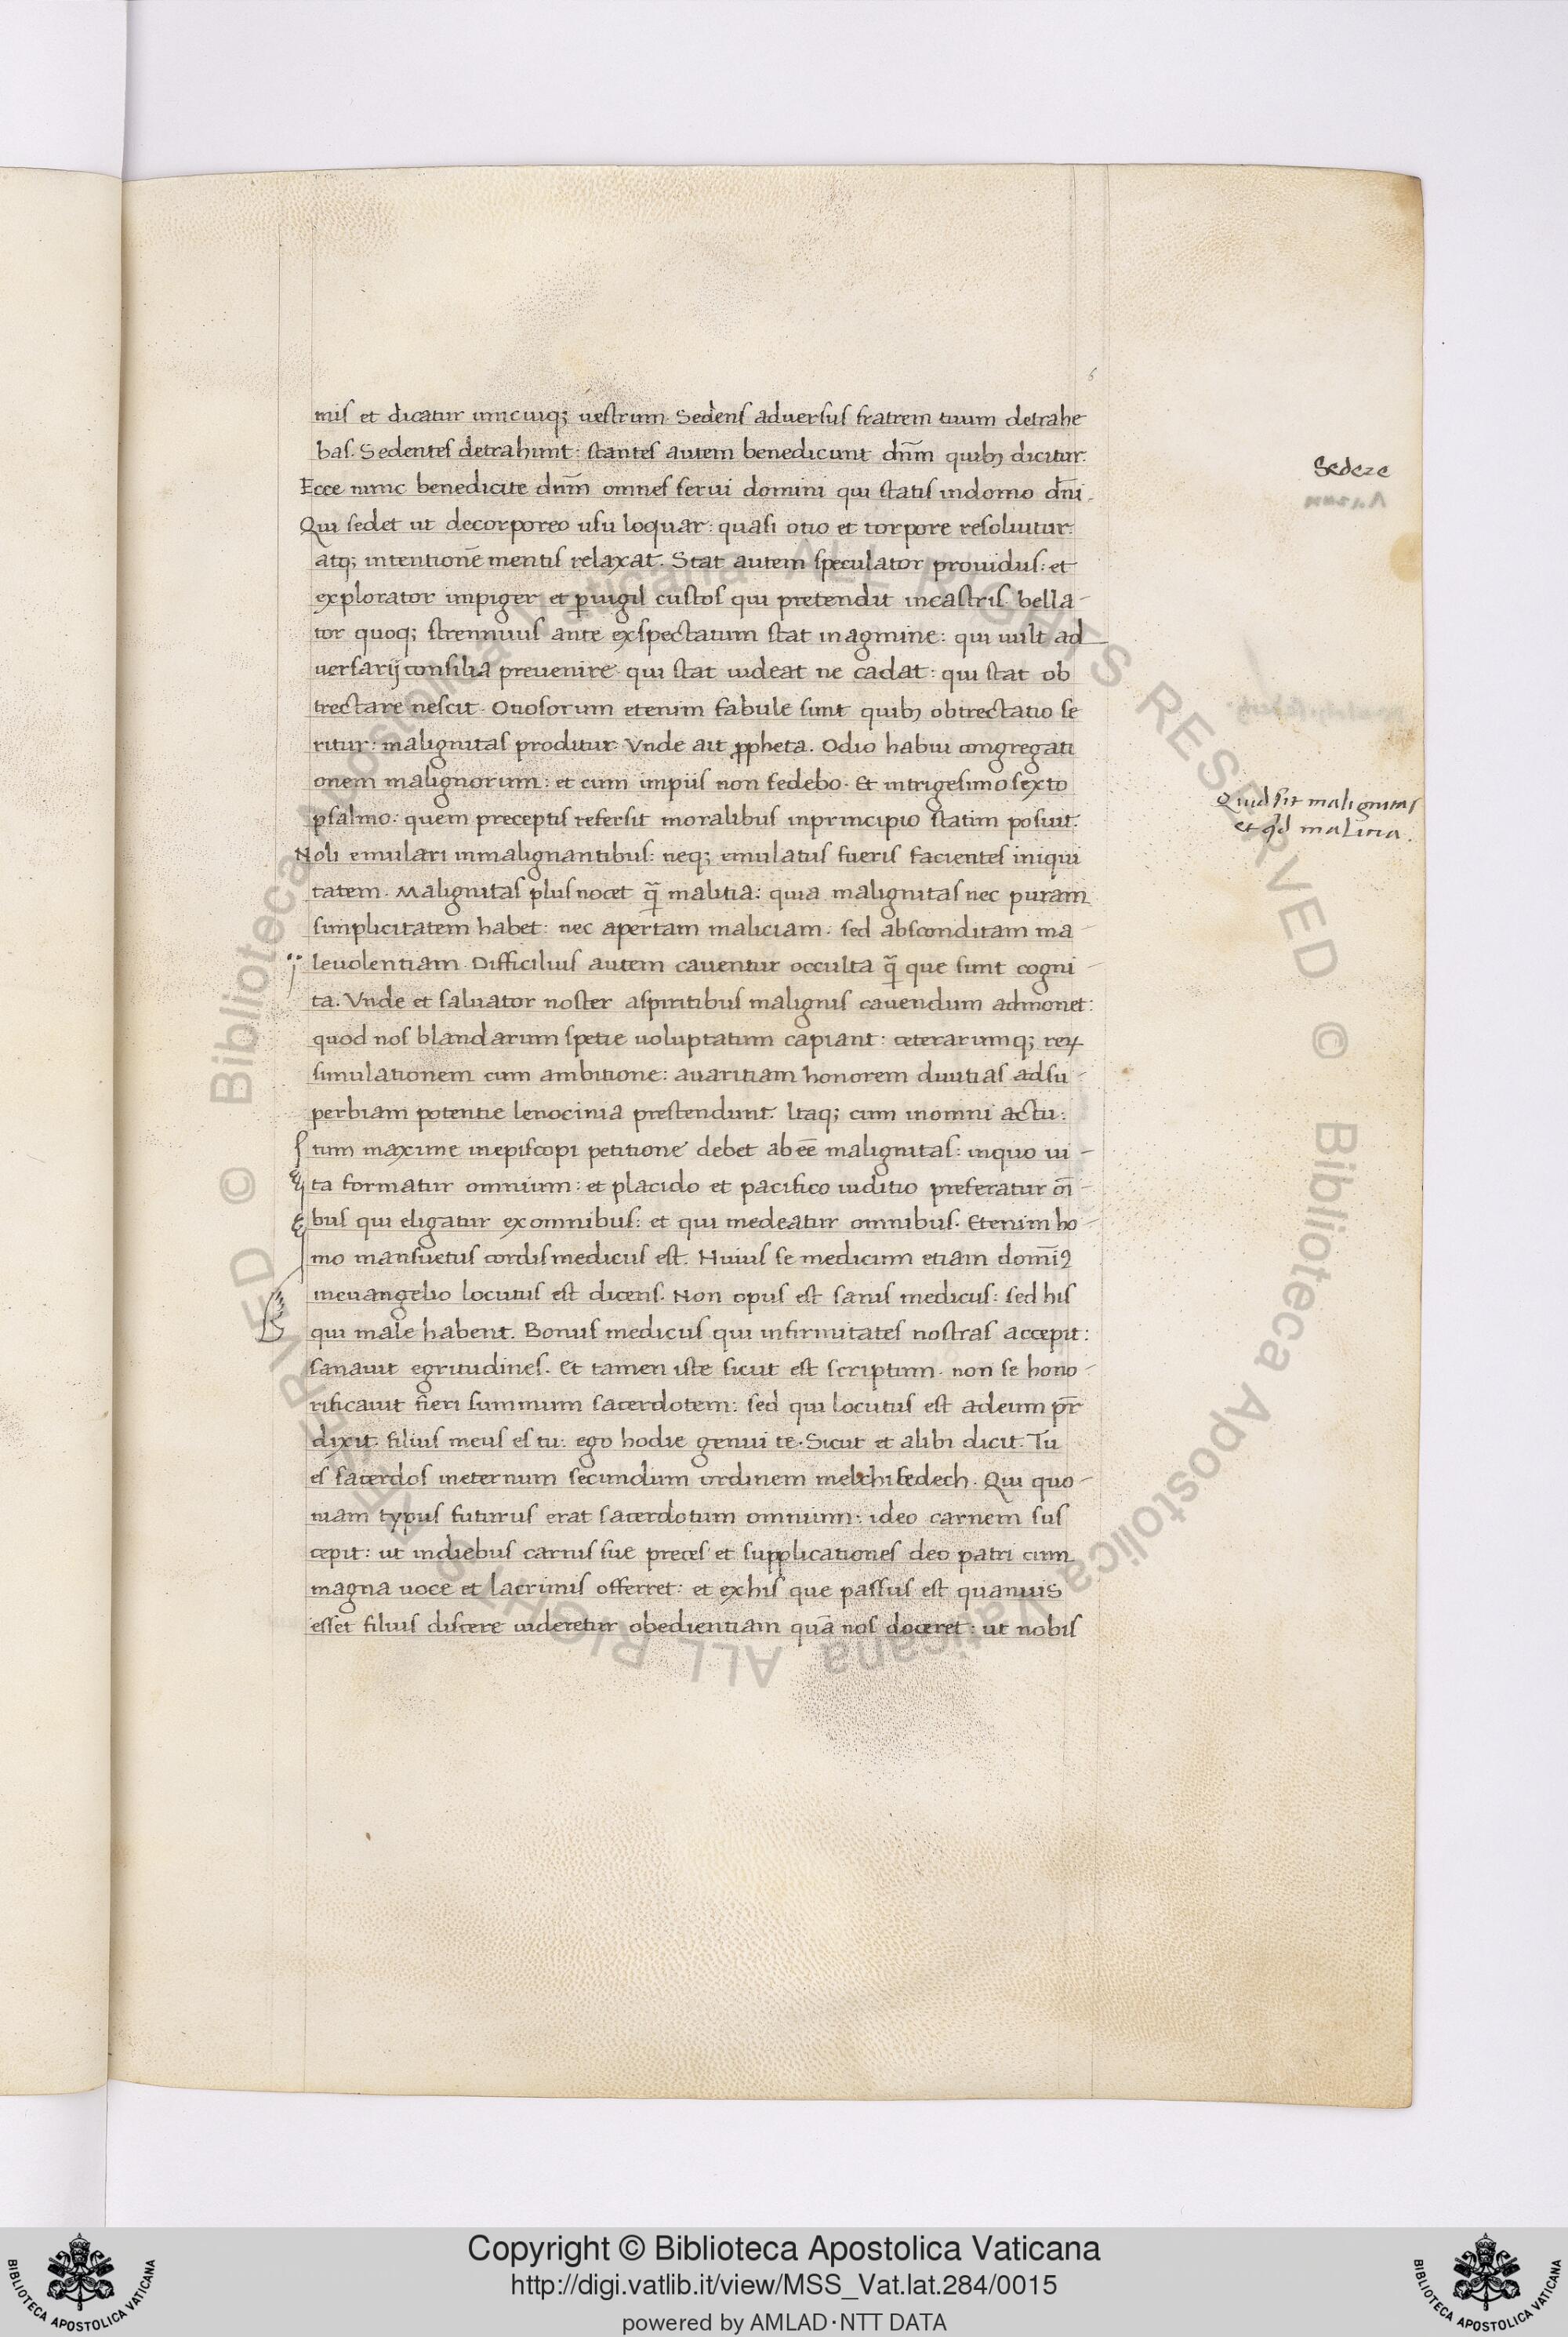 6
mis et dicatur unicuiq; uestrum. Sedens aduersus fratrem tuum detrahe
bas. Sedentes detrahunt: stantes autem benedicunt dn̄m quibꝫ dicitur.
Ecce nunc benedicite dn̄m omnes serui domini qui statis indomo dn̄i.
Qui sedet ut decorporeo usu loquar: quasi otio et torpore resoluitur:
atq; intentionē mentis relaxat. Stat autem speculator prouidus: et
explorator impiger et ꝑuigil custos qui pretendit incastris. bella-
tor quoq; strennuus ante exspectatum stat inagmine: qui uult ad
uersarij consilia preuenire. qui stat uideat ne cadat: qui stat ob
trectare nescit. Otiosorum etenim fabule sunt quibꝫ obtrectatio se
ritur: malignitas proditur. Vnde ait ꝓpheta. Odio habui congregati
onem malignorum: et cum impiis non sedebo. Et intrigesimosexto
psalmo: quem preceptis refersit moralibus inprincipio statim posuit.
Noli emulari inmalignantibus: neq; emulatus fueris facientes iniqui
tatem. Malignitas plus nocet q̄ malitia: quia malignitas nec puram
simplicitatem habet: nec apertam maliciam. sed absconditam ma-
leuolentiam. Difficilius autem cauentur occulta q̄ que sunt cogni-
ta. Vnde et saluator noster aspiritibus malignis cauendum admonet:
quod nos blandarum spetie uoluptatum capiant: ceterarumq; reꝝ
simulationem cum ambitione: auaritiam honorem diuitias adsu-
perbiam potentie lenocinia prestendunt. Itaq; cum inomni actu:
tum maxime inepiscopi petitione debet abeē malignitas: inquo ui-
ta formatur omnium: et placido et pacifico iuditio preferatur oī-
bus qui eligatur exomnibus: et qui medeatur omnibus. Etenim ho-
mo mansuetus cordis medicus est. Huius se medicum etiam domīꝰ
ineuangelio locutus est dicens. Non opus est sanis medicus: sed his
qui male habent. Bonus medicus qui infirmitates nostras accepit:
sanauit egritudines. Et tamen iste sicut est scriptum. non se hono-
rificauit fieri summum sacerdotem: sed qui locutus est adeum pr̄
dixit. filius meus es tu: ego hodie genui te. Sicut et alibi dicit. Tu
es sacerdos ineternum secundum ordinem melchisedech. Qui quo-
niam typus futurus erat sacerdotum omnium: ideo carnem sus
cepit: ut indiebus carnis sue preces et supplicationes deo patri cum
magna uoce et lacrimis offerret: et exhis que passus est quamuis
esset filius discere uideretur obedientiam quā nos doceret: ut nobis
Sedere
Quid sit malignitas
et qd malitia.
Copyright © Biblioteca Apostolica Vaticana
http://digi.vatlib.it/view/MSS_Vat.lat.284/0015
powered by AMLAD·NTT DATA
BIBLIOTECA APOSTOLICA VATICANA
BIBLIOTECA APOSTOLICA VATICANA
© Biblioteca Apostolica Vaticana ALL RIGHTS RESERVED
© Biblioteca Apostolica Vaticana ALL RIGHTS RESERVED